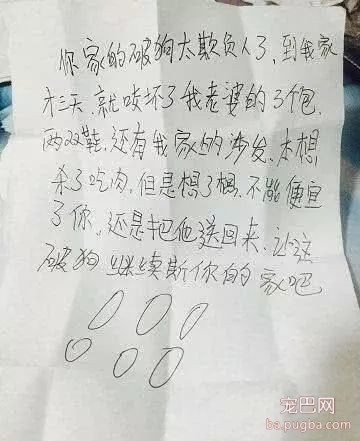 你家的破狗太欺负人了,到我家
才三天,就咬坏了我老婆的3个包,
两双鞋,还有我家的沙发,本想
杀了吃肉,但是想了想,不能便宜
了你,还是把他送回来,让这
破狗继续斯你的家吧
宠巴网
ba.pugba.com